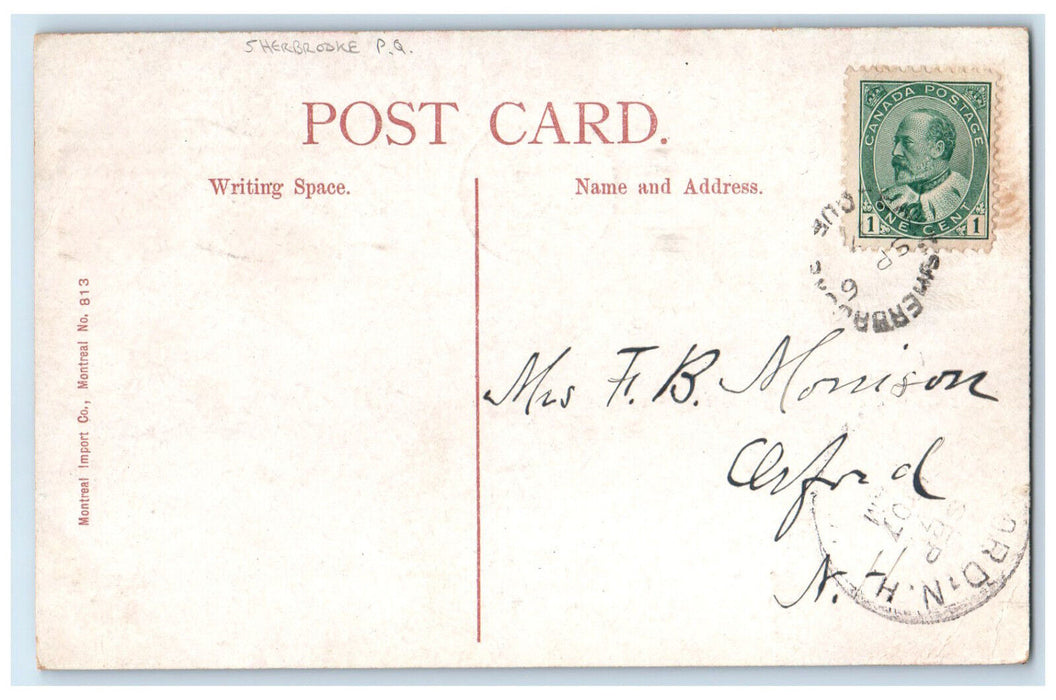 SHERBROOKE P.Q.
POST CARD.
Writing Space.
Name and Address.
CANADA POSTAGE
1 ONE CENT 1
SHERBROOKE QUE
SP 6
Montreal Import Co., Montreal No. 813
Mrs F. B. Morrison
Orford
N. H.
ORD, N.H.
SEP
07